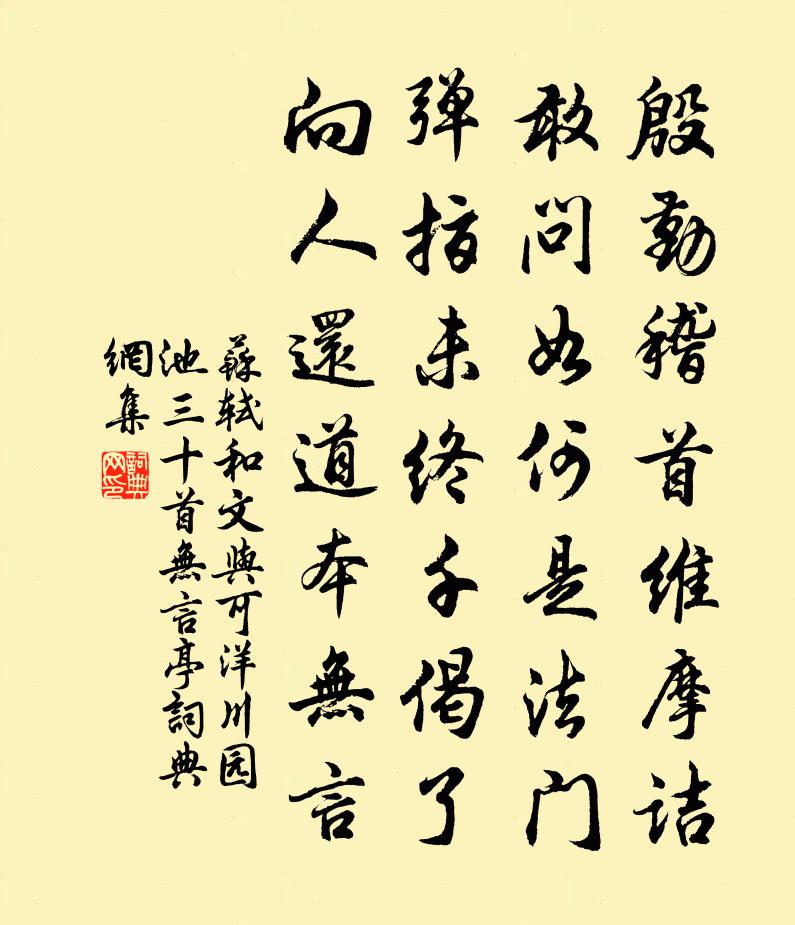 殷勤稽首維摩詰
敢問如何是法門
弹指未终千偈了
向人還道本無言
蘇轼和文與可洋川园
池三十首無言亭詞典
網集
詞典
网印